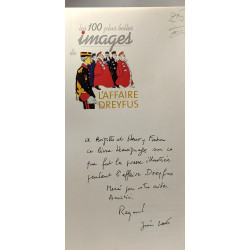 les 100 plus belles
images
de
L'AFFAIRE
DREYFUS
A Brigitte et Henry
ce livre témoignage sur ce
que fut la presse illustrée
pendant l'affaire Dreyfus
Merci pour votre